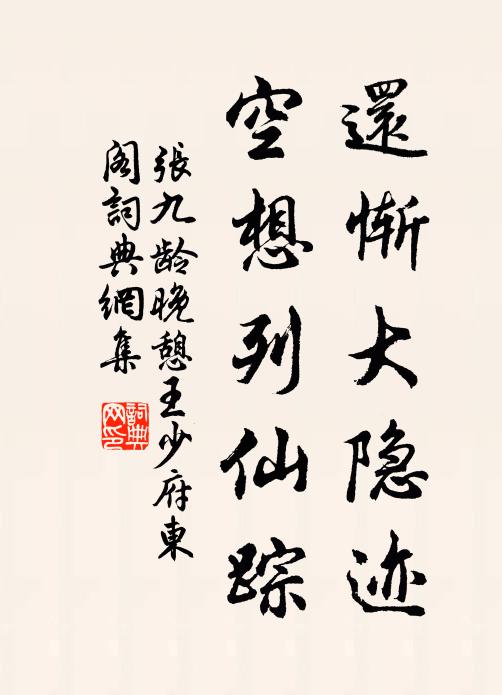 還慚大隐迹
空想列仙踪
張九龄晚憩王少府東
阁詞典網集
詞典
网印